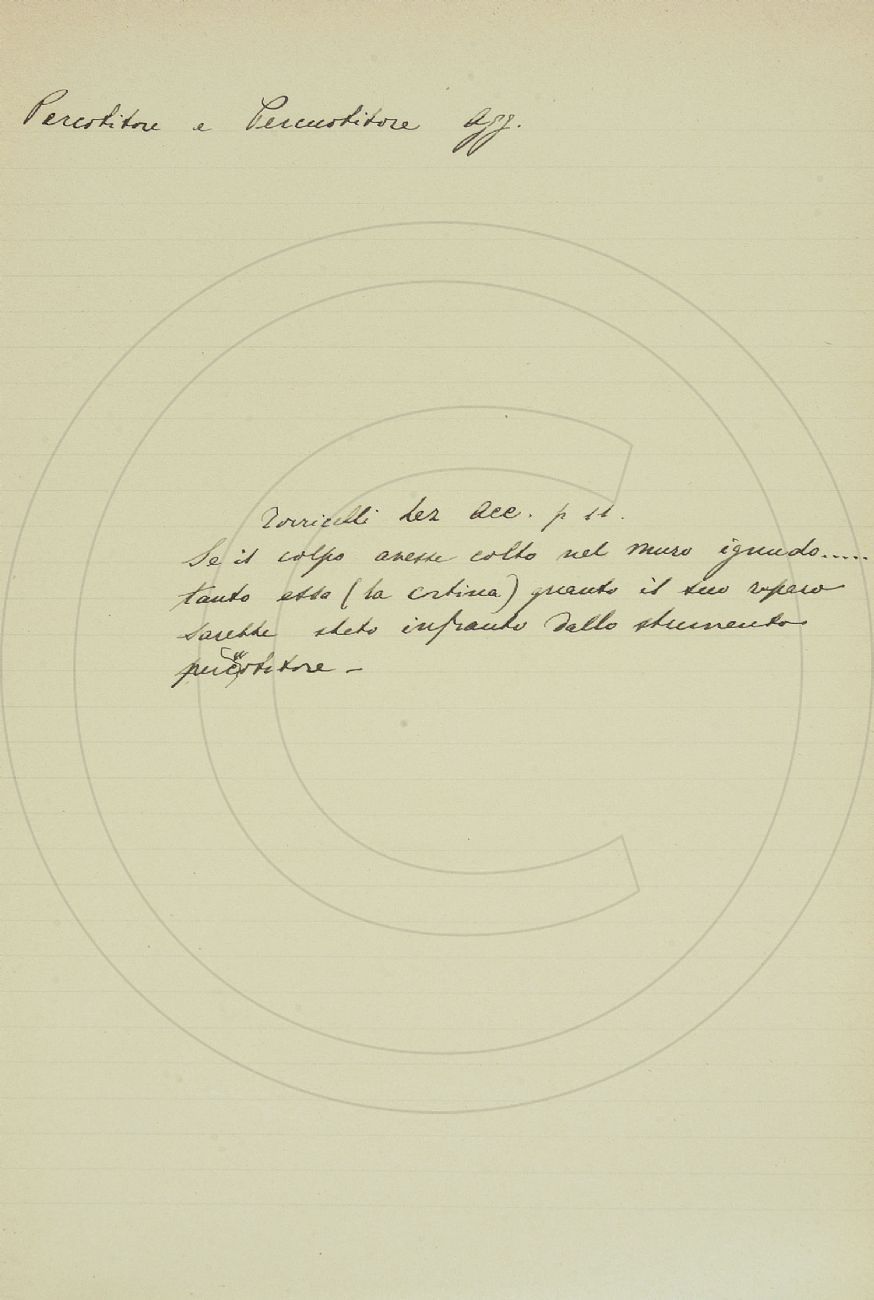 Percotitore e Percuotitore Agg.
Torricelli Lez Acc. p 11.
Se il colpo avesse colto nel muro ignudo.....
tanto essa (la cortina) quanto il suo riparo
sarebbe stato infranto dallo strumento
percotitore –